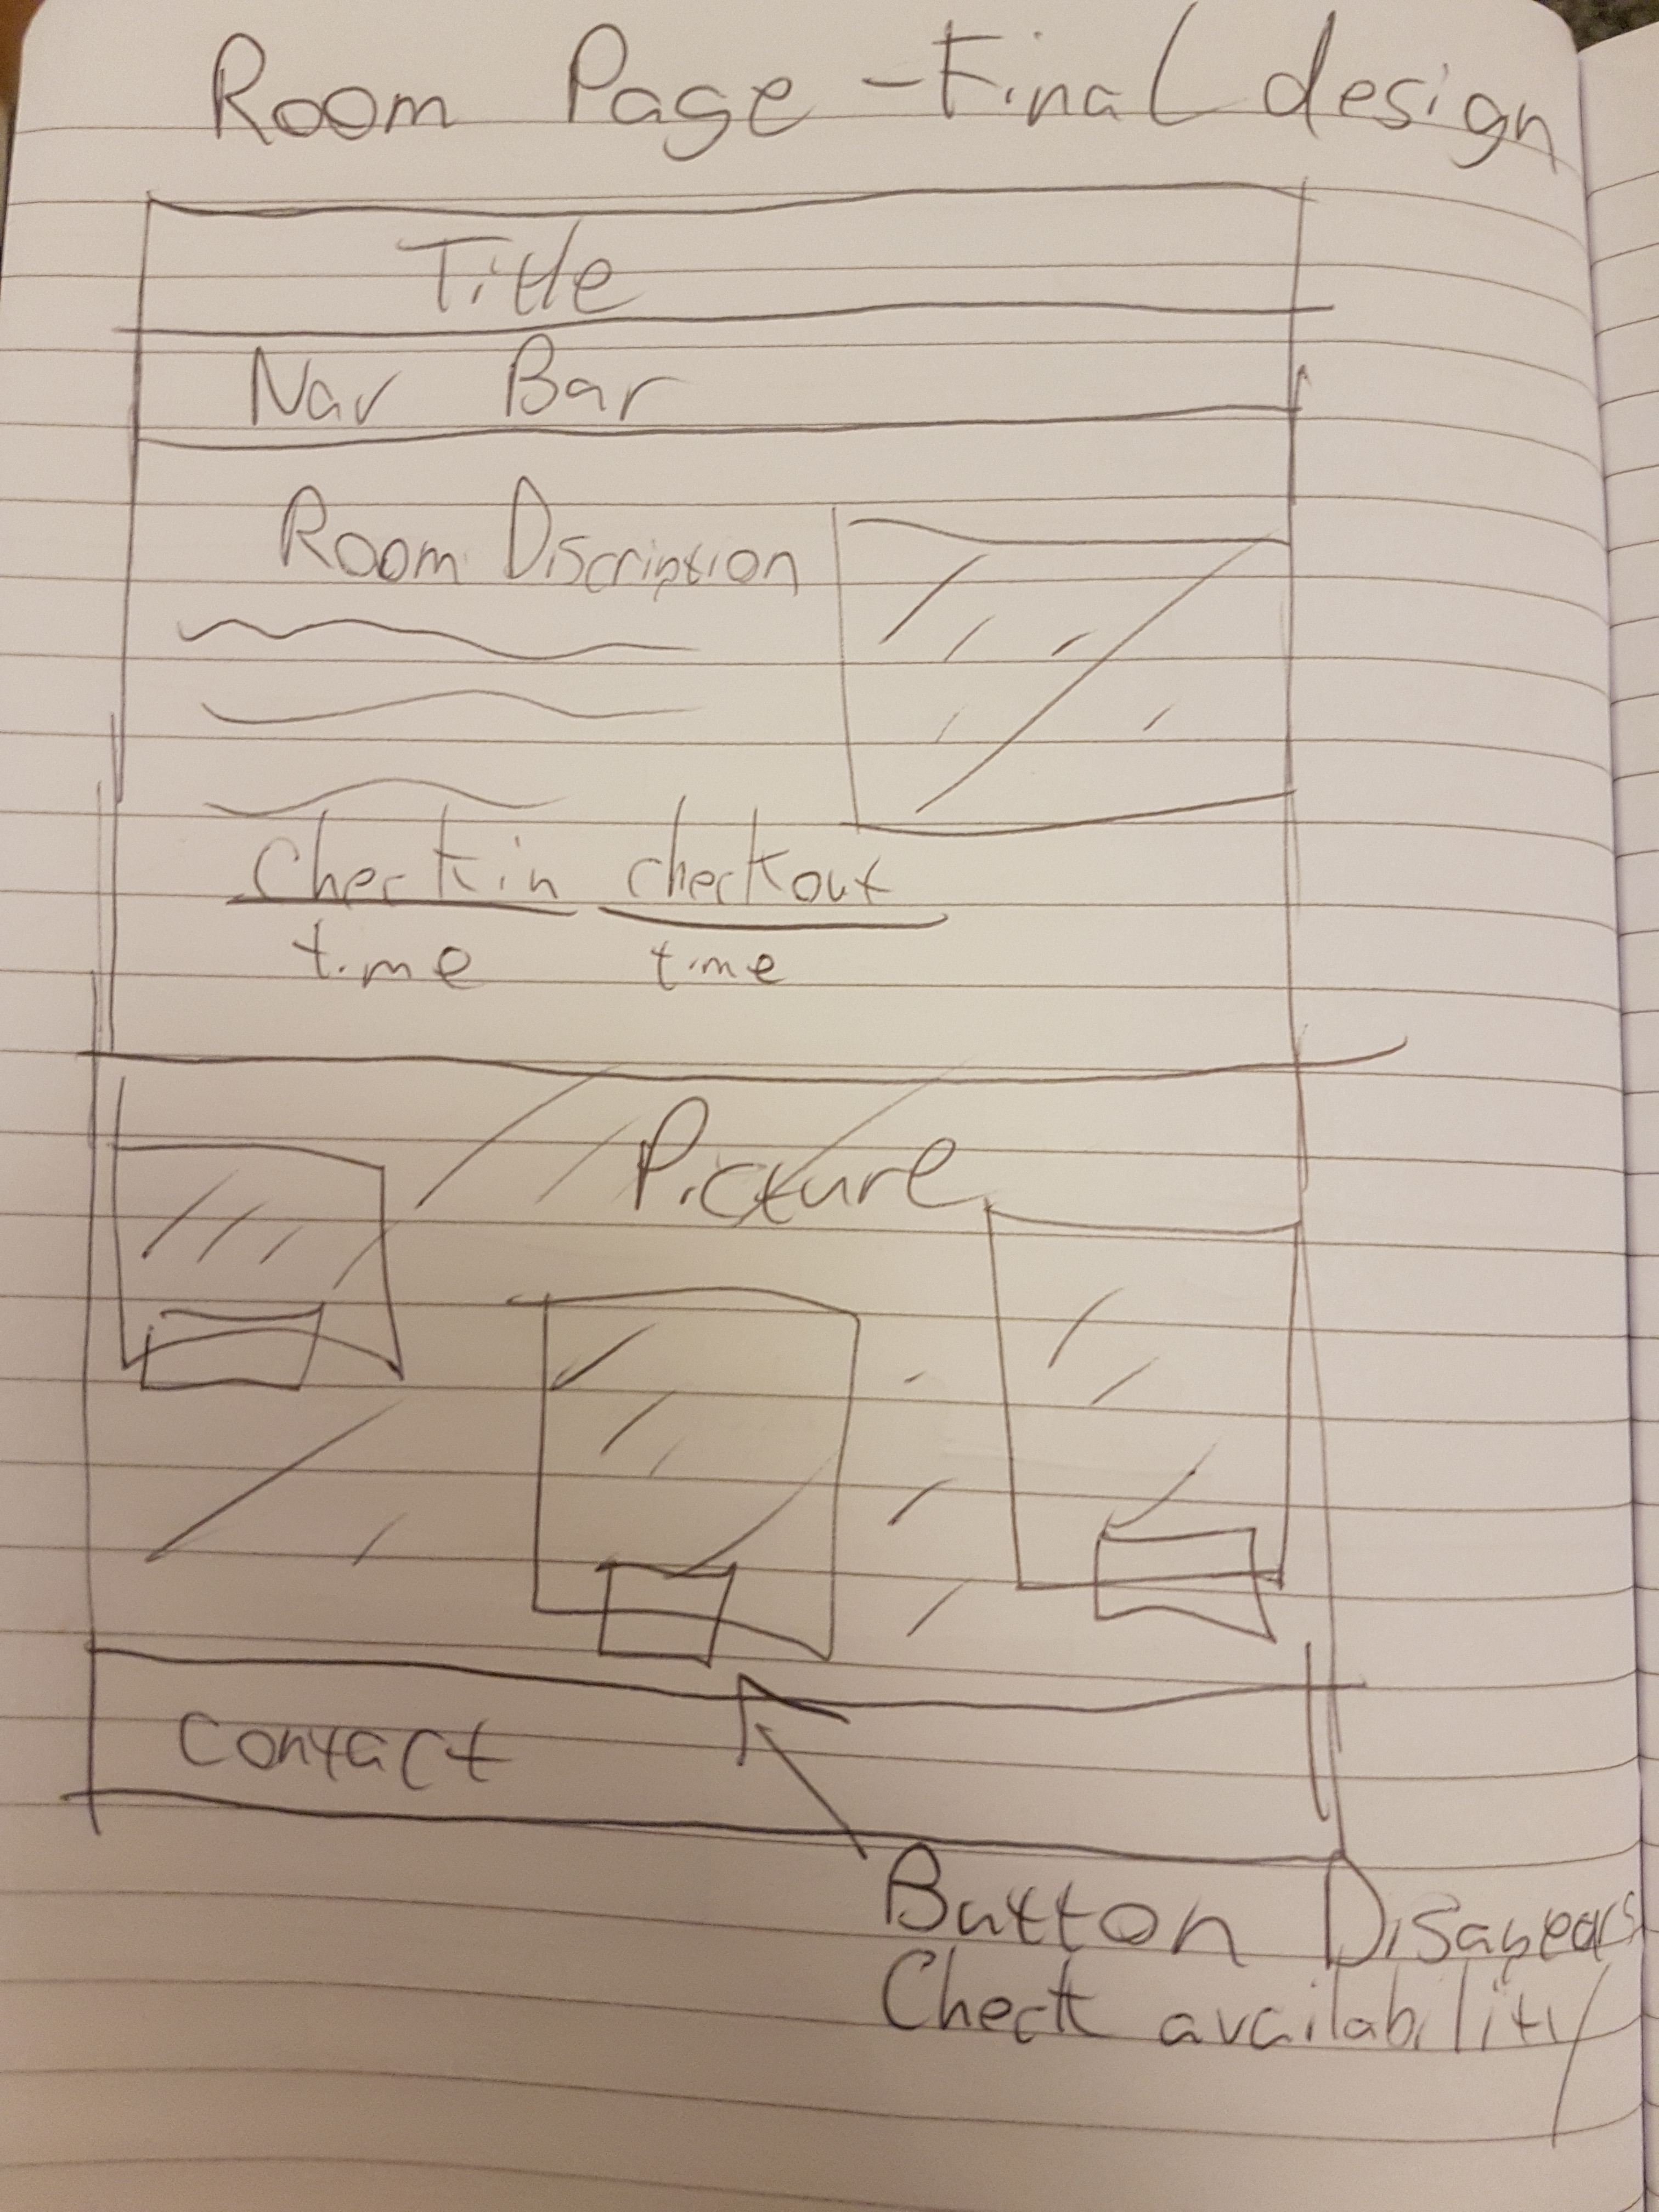 Room Page - Final design
Title
Nav Bar
Room Discription
Check in checkout
time time
Picture
Contact
Button Disapears
Check availability